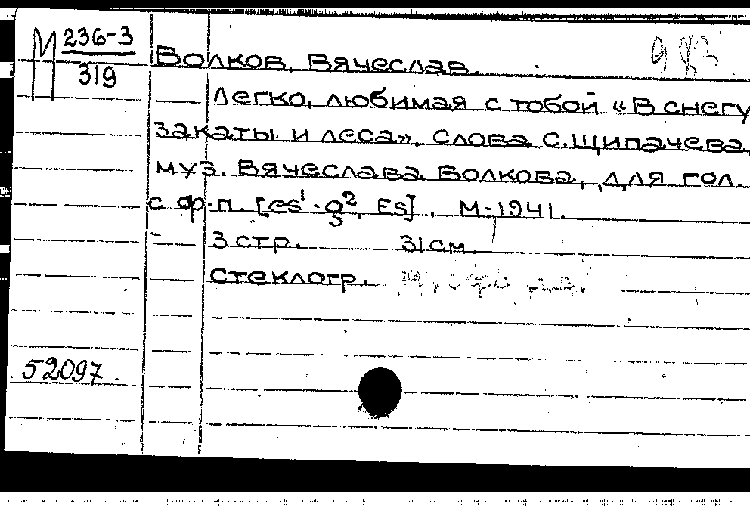 М 236-3
319
Волков, Вячеслав.
Легко, любимая с тобой «В снегу
закаты и леса». Слова С. Щипачева,
муз. Вячеслава Волкова, для гол.
с ф.п. [es¹-g², Es]. М-1941.
3 стр. 31 см.
Стеклогр.
52097.